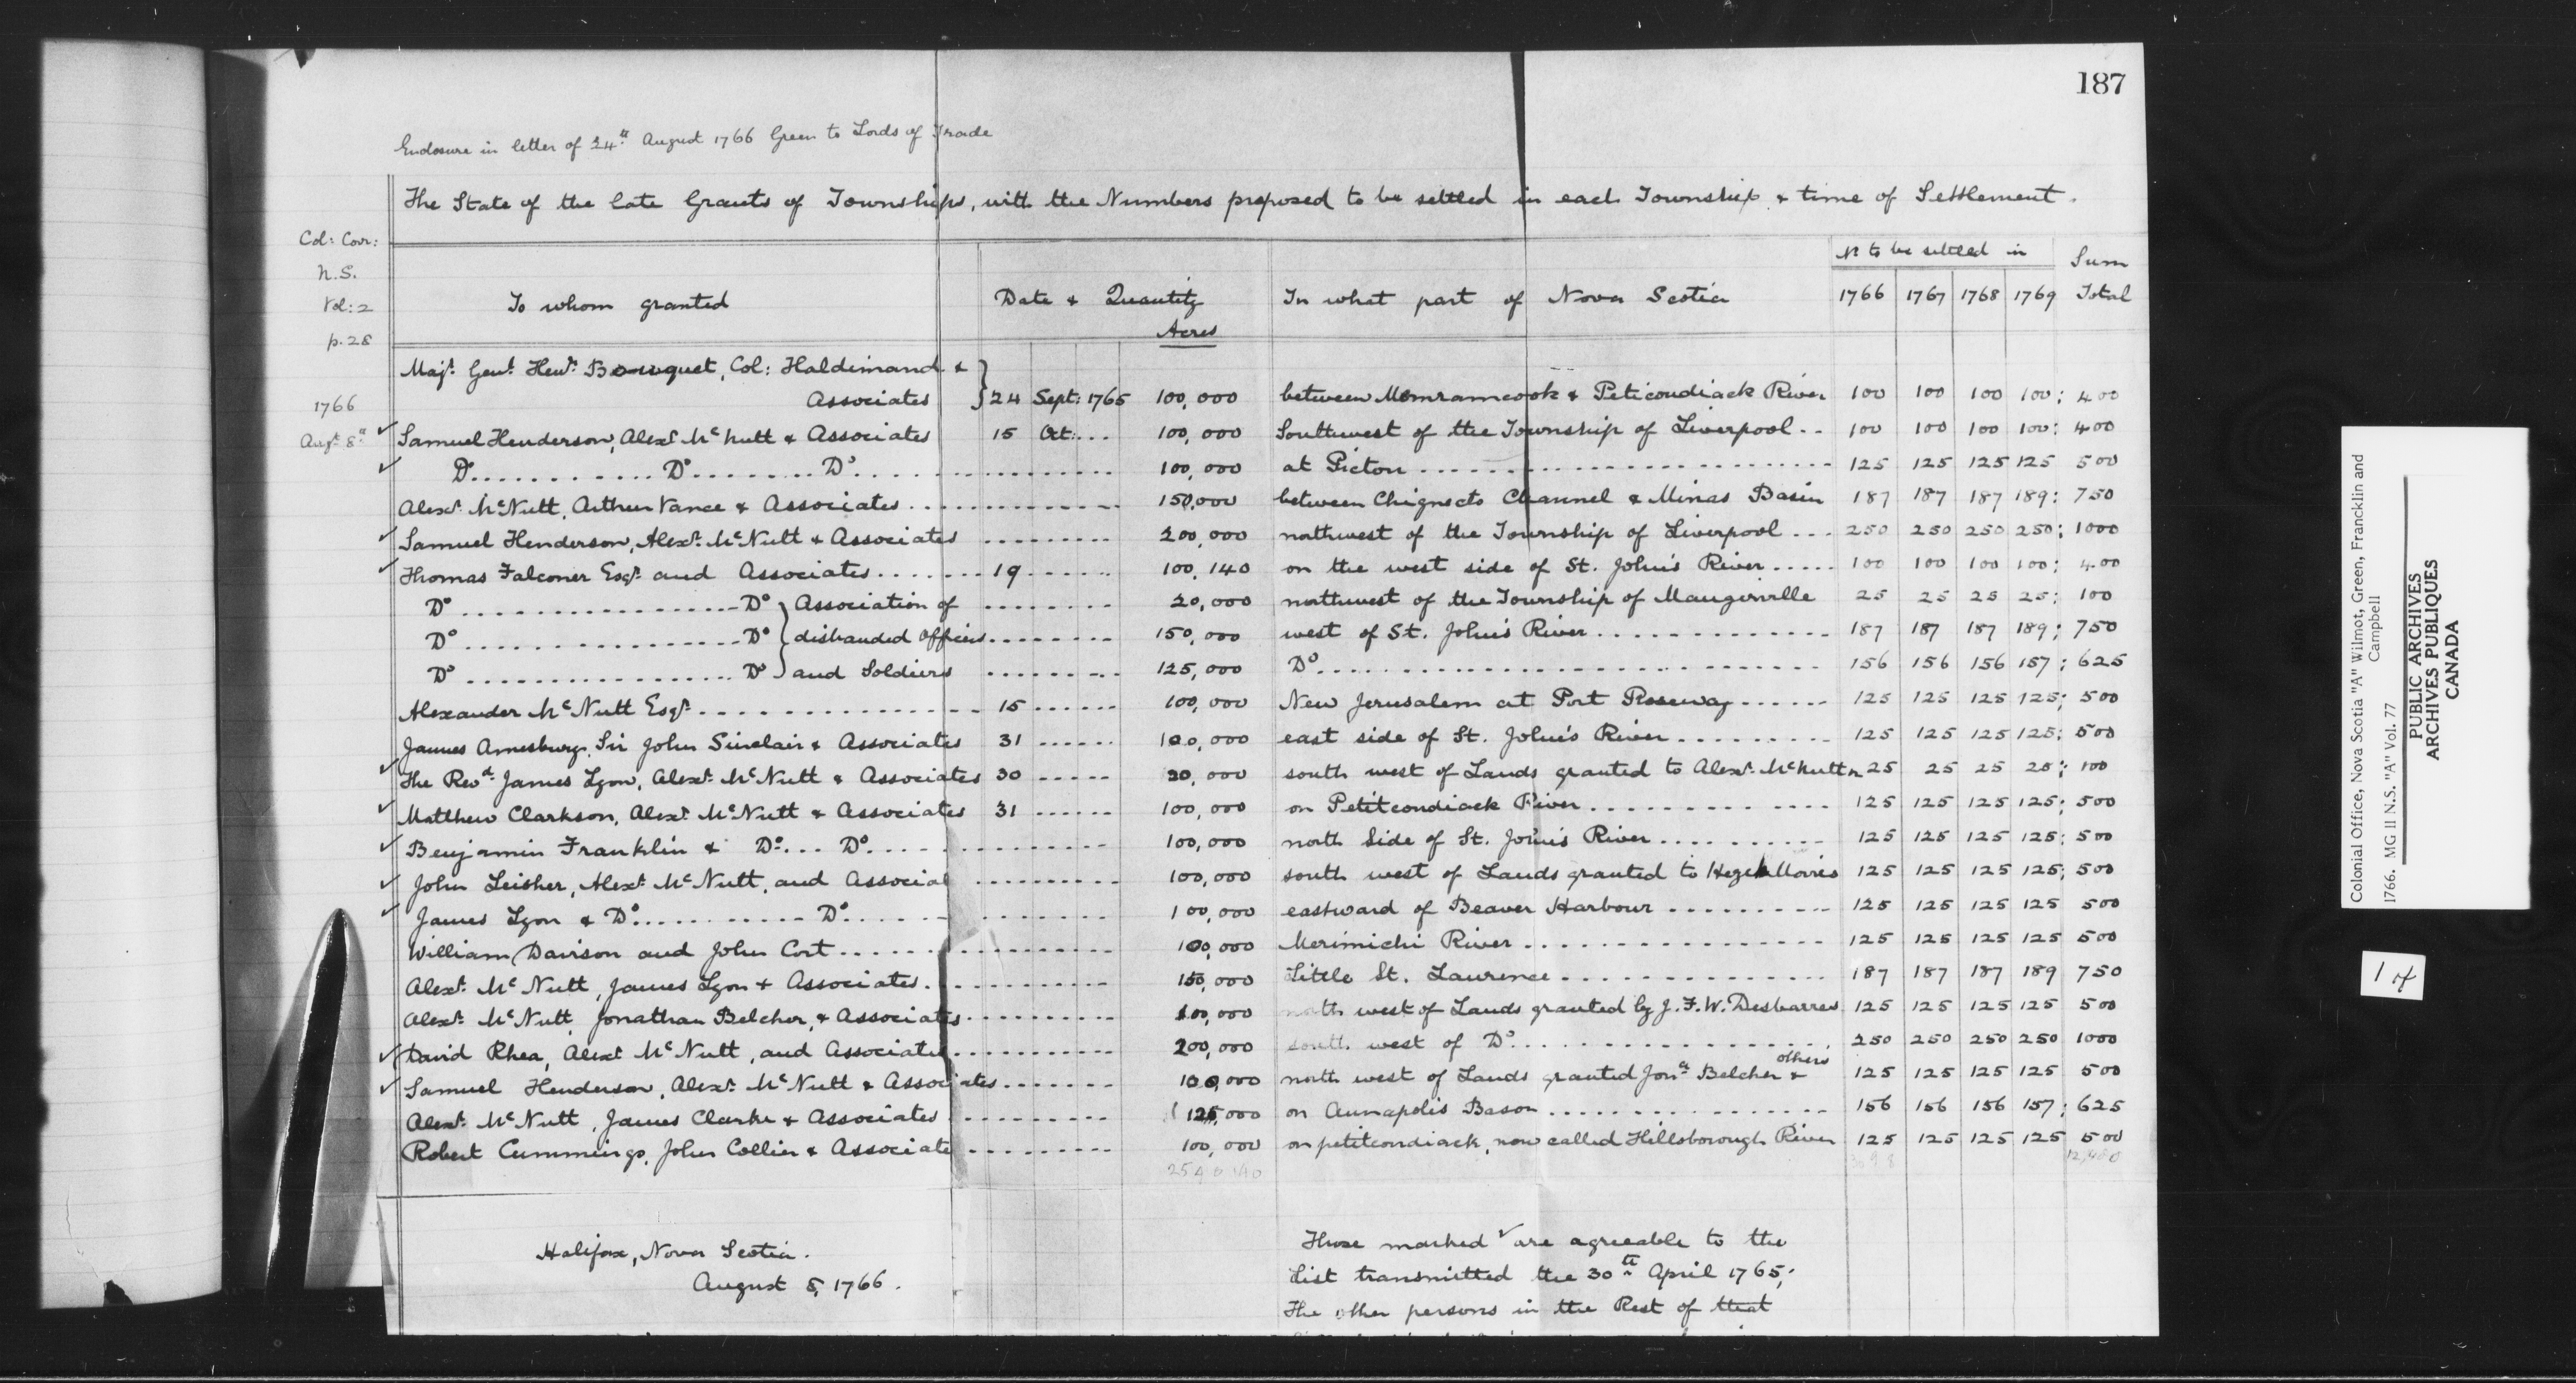 187
Enclosure in letter of 24th August 1766 Green to Lords of Trade
The State of the late Grants of Townships, with the Numbers proposed to be settled in each Township & time of Settlement.
Col: Corr:
N.S.
Vol: 2
p. 28
1766
Augt 8th
To whom granted Date & Quantity Acres In what part of Nova Scotia No to be settled in 1766 1767 1768 1769 Sum Total
Majr. Genl. Henr. Bouquet, Col: Haldimand &
Associates } 24 Sept: 1765 100,000 between Memramcook & Peticoudiack River 100 100 100 100: 400
✓ Samuel Henderson, Alexr McNutt & Associates 15 Oct:... 100,000 Southwest of the Township of Liverpool.. 100 100 100 100: 400
✓ Do............Do.........Do............ 100,000 at Picton............ 125 125 125 125 500
Alexr. McNutt, Arthur Vance & Associates............ 150,000 between Chignecto Channel & Minas Basin 187 187 187 189: 750
✓ Samuel Henderson, Alexr. McNutt & Associates ......... 200,000 northwest of the Township of Liverpool... 250 250 250 250: 1000
✓ Thomas Falconer Esqr. and Associates.......19....... 100,140 on the west side of St. John's River..... 100 100 100 100: 400
Do ..................Do } Association of ......... 20,000 northwest of the Township of Maugerville 25 25 25 25: 100
Do ..................Do } disbanded Officers......... 150,000 west of St. John's River............. 187 187 187 189: 750
Do ..................Do } and Soldiers ......... 125,000 Do............ 156 156 156 157: 625
Alexander McNutt Esqr.................15...... 100,000 New Jerusalem at Port Roseway...... 125 125 125 125: 500
James Amesbury, Sir John Sinclair & Associates 31...... 100,000 east side of St. John's River......... 125 125 125 125: 500
✓ The Revd. James Lyon, Alexr. McNutt & Associates 30..... 20,000 south west of Lands granted to Alexr. McNutt 25 25 25 25: 100
✓ Matthew Clarkson, Alexr. McNutt & Associates 31...... 100,000 on Petitcondiack River............ 125 125 125 125: 500
✓ Benjamin Franklin & Do.... Do............ 100,000 north Side of St. John's River......... 125 125 125 125: 500
✓ John Leisher, Alexr. McNutt, and Associat ......... 100,000 south west of Lands granted to Hezek Morris 125 125 125 125: 500
✓ James Lyon & Do...........Do............ 100,000 eastward of Beaver Harbour......... 125 125 125 125 500
William Davison and John Cort............ 100,000 Merimichi River............ 125 125 125 125 500
Alexr. McNutt, James Lyon & Associates............ 150,000 Little St. Laurence............ 187 187 187 189 750
Alexr. McNutt, Jonathan Belcher, & Associates............ 100,000 north west of Lands granted by J. F. W. Desbarres 125 125 125 125 500
✓ David Rhea, Alexr McNutt, and Associates............ 200,000 south west of Do............ 250 250 250 250 1000
✓ Samuel Henderson, Alexr. McNutt & Associates....... 100,000 north west of Lands granted Jona. Belcher & others 125 125 125 125 500
Alexr. McNutt, James Clarke & Associates ......... 125,000 on Annapolis Bason............ 156 156 156 157: 625
Robert Cummings, John Collier & Associate ......... 100,000 on petitcondiack, now called Hillsborough River 125 125 125 125 500
2540140
Halifax, Nova Scotia.
August 8, 1766.
Those marked ✓ are agreeable to the
List transmitted the 30th April 1765;
The other persons in the Rest of that
Colonial Office, Nova Scotia "A" Wilmot, Green, Francklin and
Campbell
1766. MG II N.S. "A" Vol. 77
PUBLIC ARCHIVES
ARCHIVES PUBLIQUES
CANADA
1 of